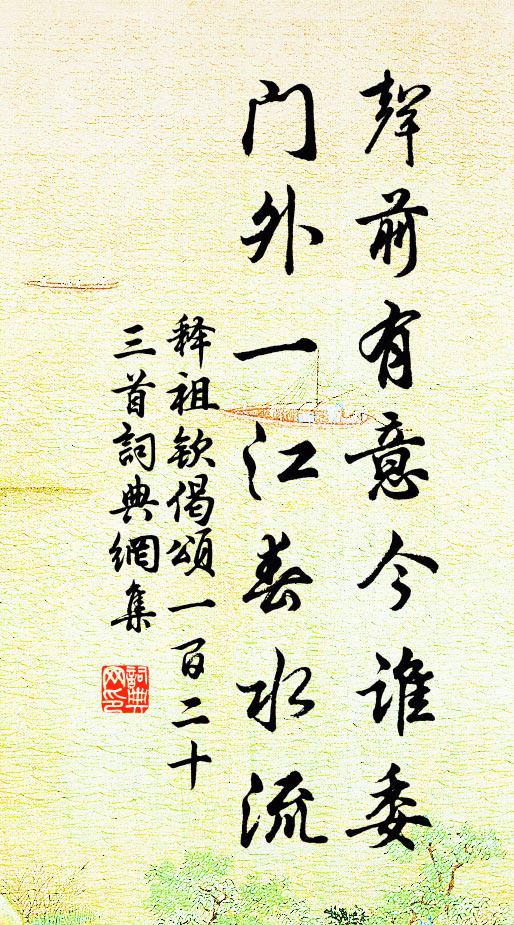 聲前有意今誰委
門外一江春水流
释祖欽偈頌一百二十
三首詞典網集
詞典
网印